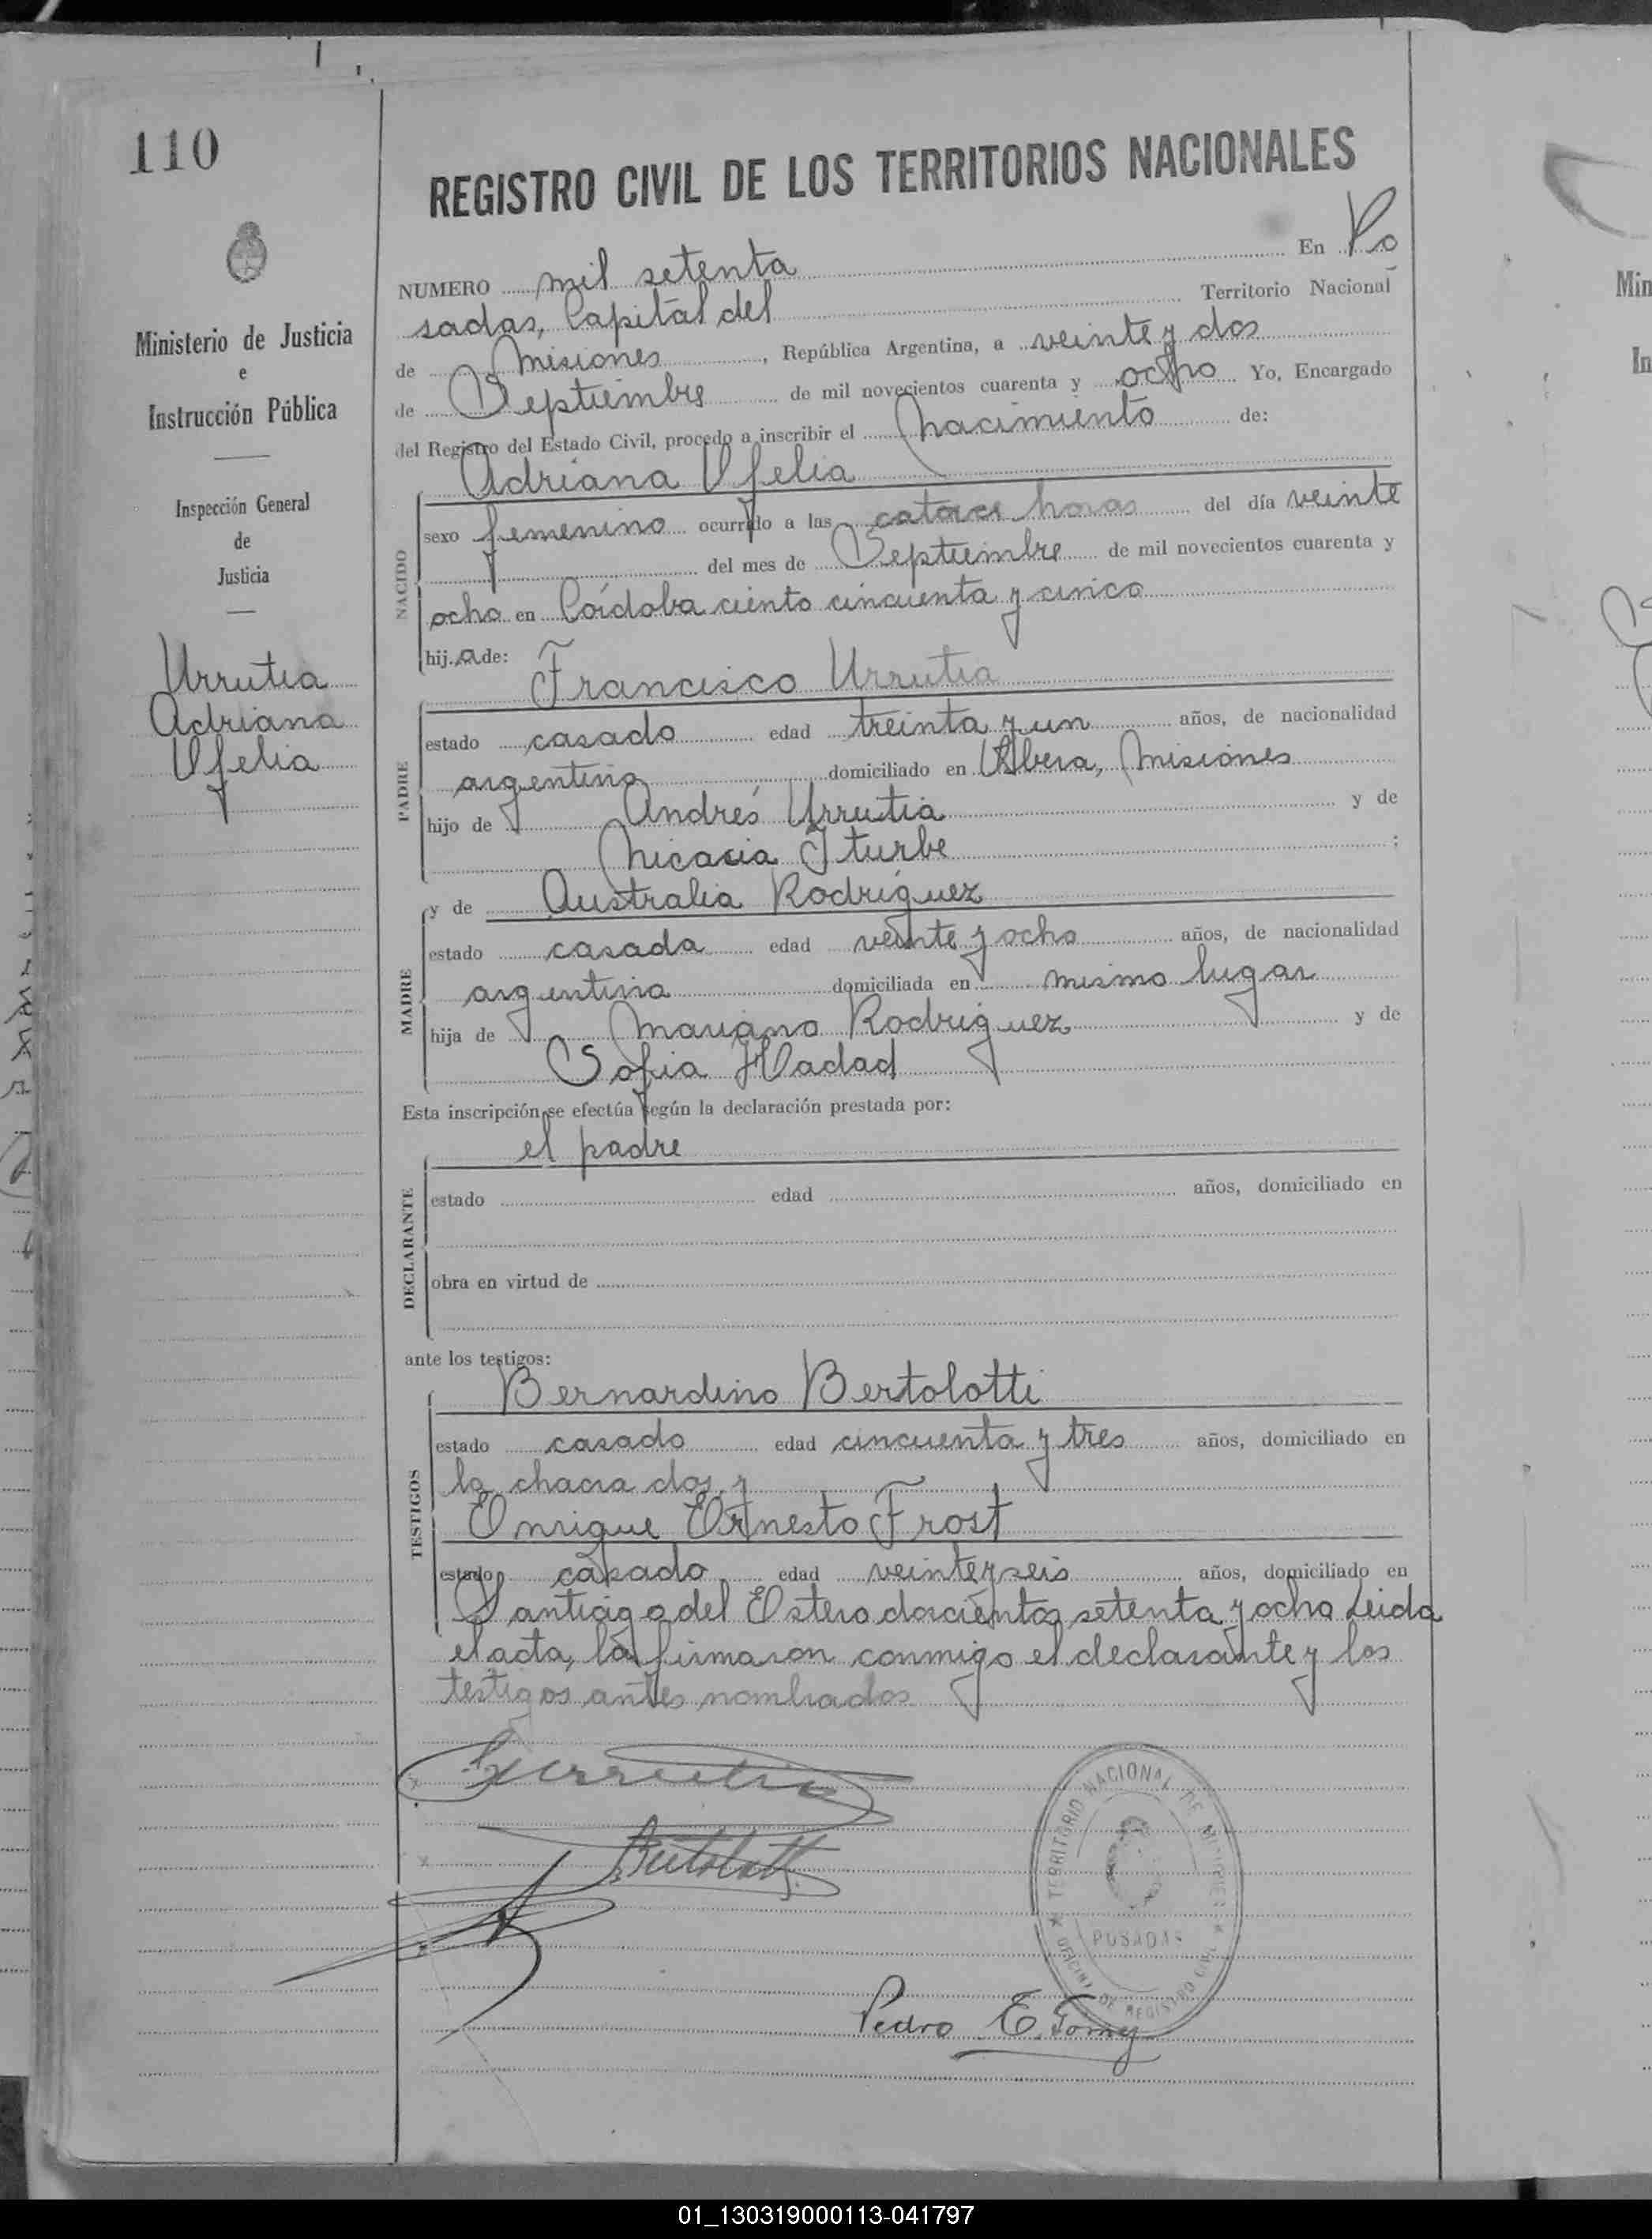 110
REGISTRO CIVIL DE LOS TERRITORIOS NACIONALES
Ministerio de Justicia
e
Instrucción Pública
Inspección General
de
Justicia
Urrutia
Adriana
Ofelia
NUMERO mil setenta En Po
sadas, Capital del Territorio Nacional
de Misiones, República Argentina, a veinte y dos
de Septiembre de mil novecientos cuarenta y ocho Yo, Encargado
del Registro del Estado Civil, procedo a inscribir el nacimiento de:
Adriana Ofelia
NACIDO
sexo femenino ocurrido a las catorce horas del día veinte
del mes de Septiembre de mil novecientos cuarenta y
ocho en Córdoba ciento cincuenta y cinco
hij a de:
Francisco Urrutia
PADRE
estado casado edad treinta y un años, de nacionalidad
argentina domiciliado en Obera, Misiones
hijo de Andrés Urrutia y de
Nicasia Iturbe ;
y de Australia Rodríguez
MADRE
estado casada edad veinte y ocho años, de nacionalidad
argentina domiciliada en mismo lugar
hija de Mariano Rodríguez y de
Sofia Hadad
Esta inscripción se efectúa según la declaración prestada por:
el padre
DECLARANTE
estado edad años, domiciliado en
obra en virtud de
ante los testigos:
Bernardino Bertolotti
TESTIGOS
estado casado edad cincuenta y tres años, domiciliado en
la chacra dos y
Enrique Ernesto Frost
estado casado edad veinte y seis años, domiciliado en
Santiago del Estero doscientos setenta y ocho Leida
el acta, la firmaron conmigo el declarante y los
testigos antes nombrados
Urrutia
Bertolotti
TERRITORIO NACIONAL DE MISIONES
POSADAS
OFICINA DE REGISTRO CIVIL
Pedro E.
Min
In
01_130319000113-041797